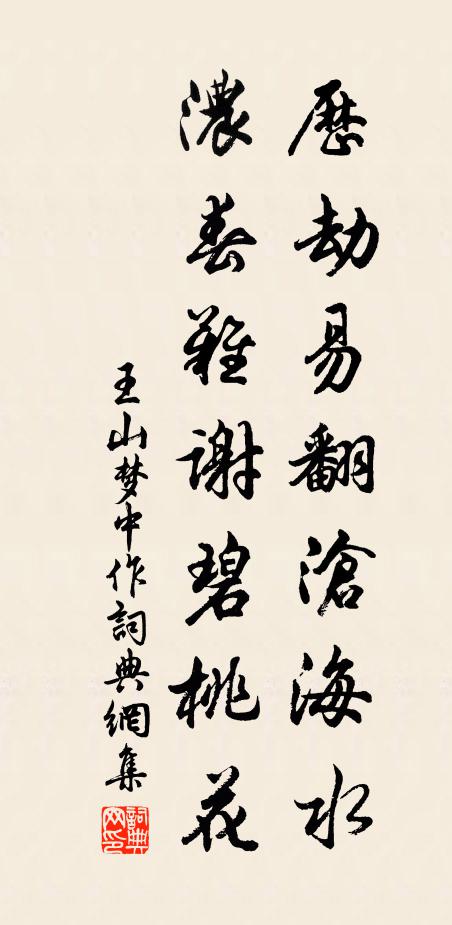 歷劫易翻滄海水
濃春難謝碧桃花
王山梦中作詞典網集
詞典網印